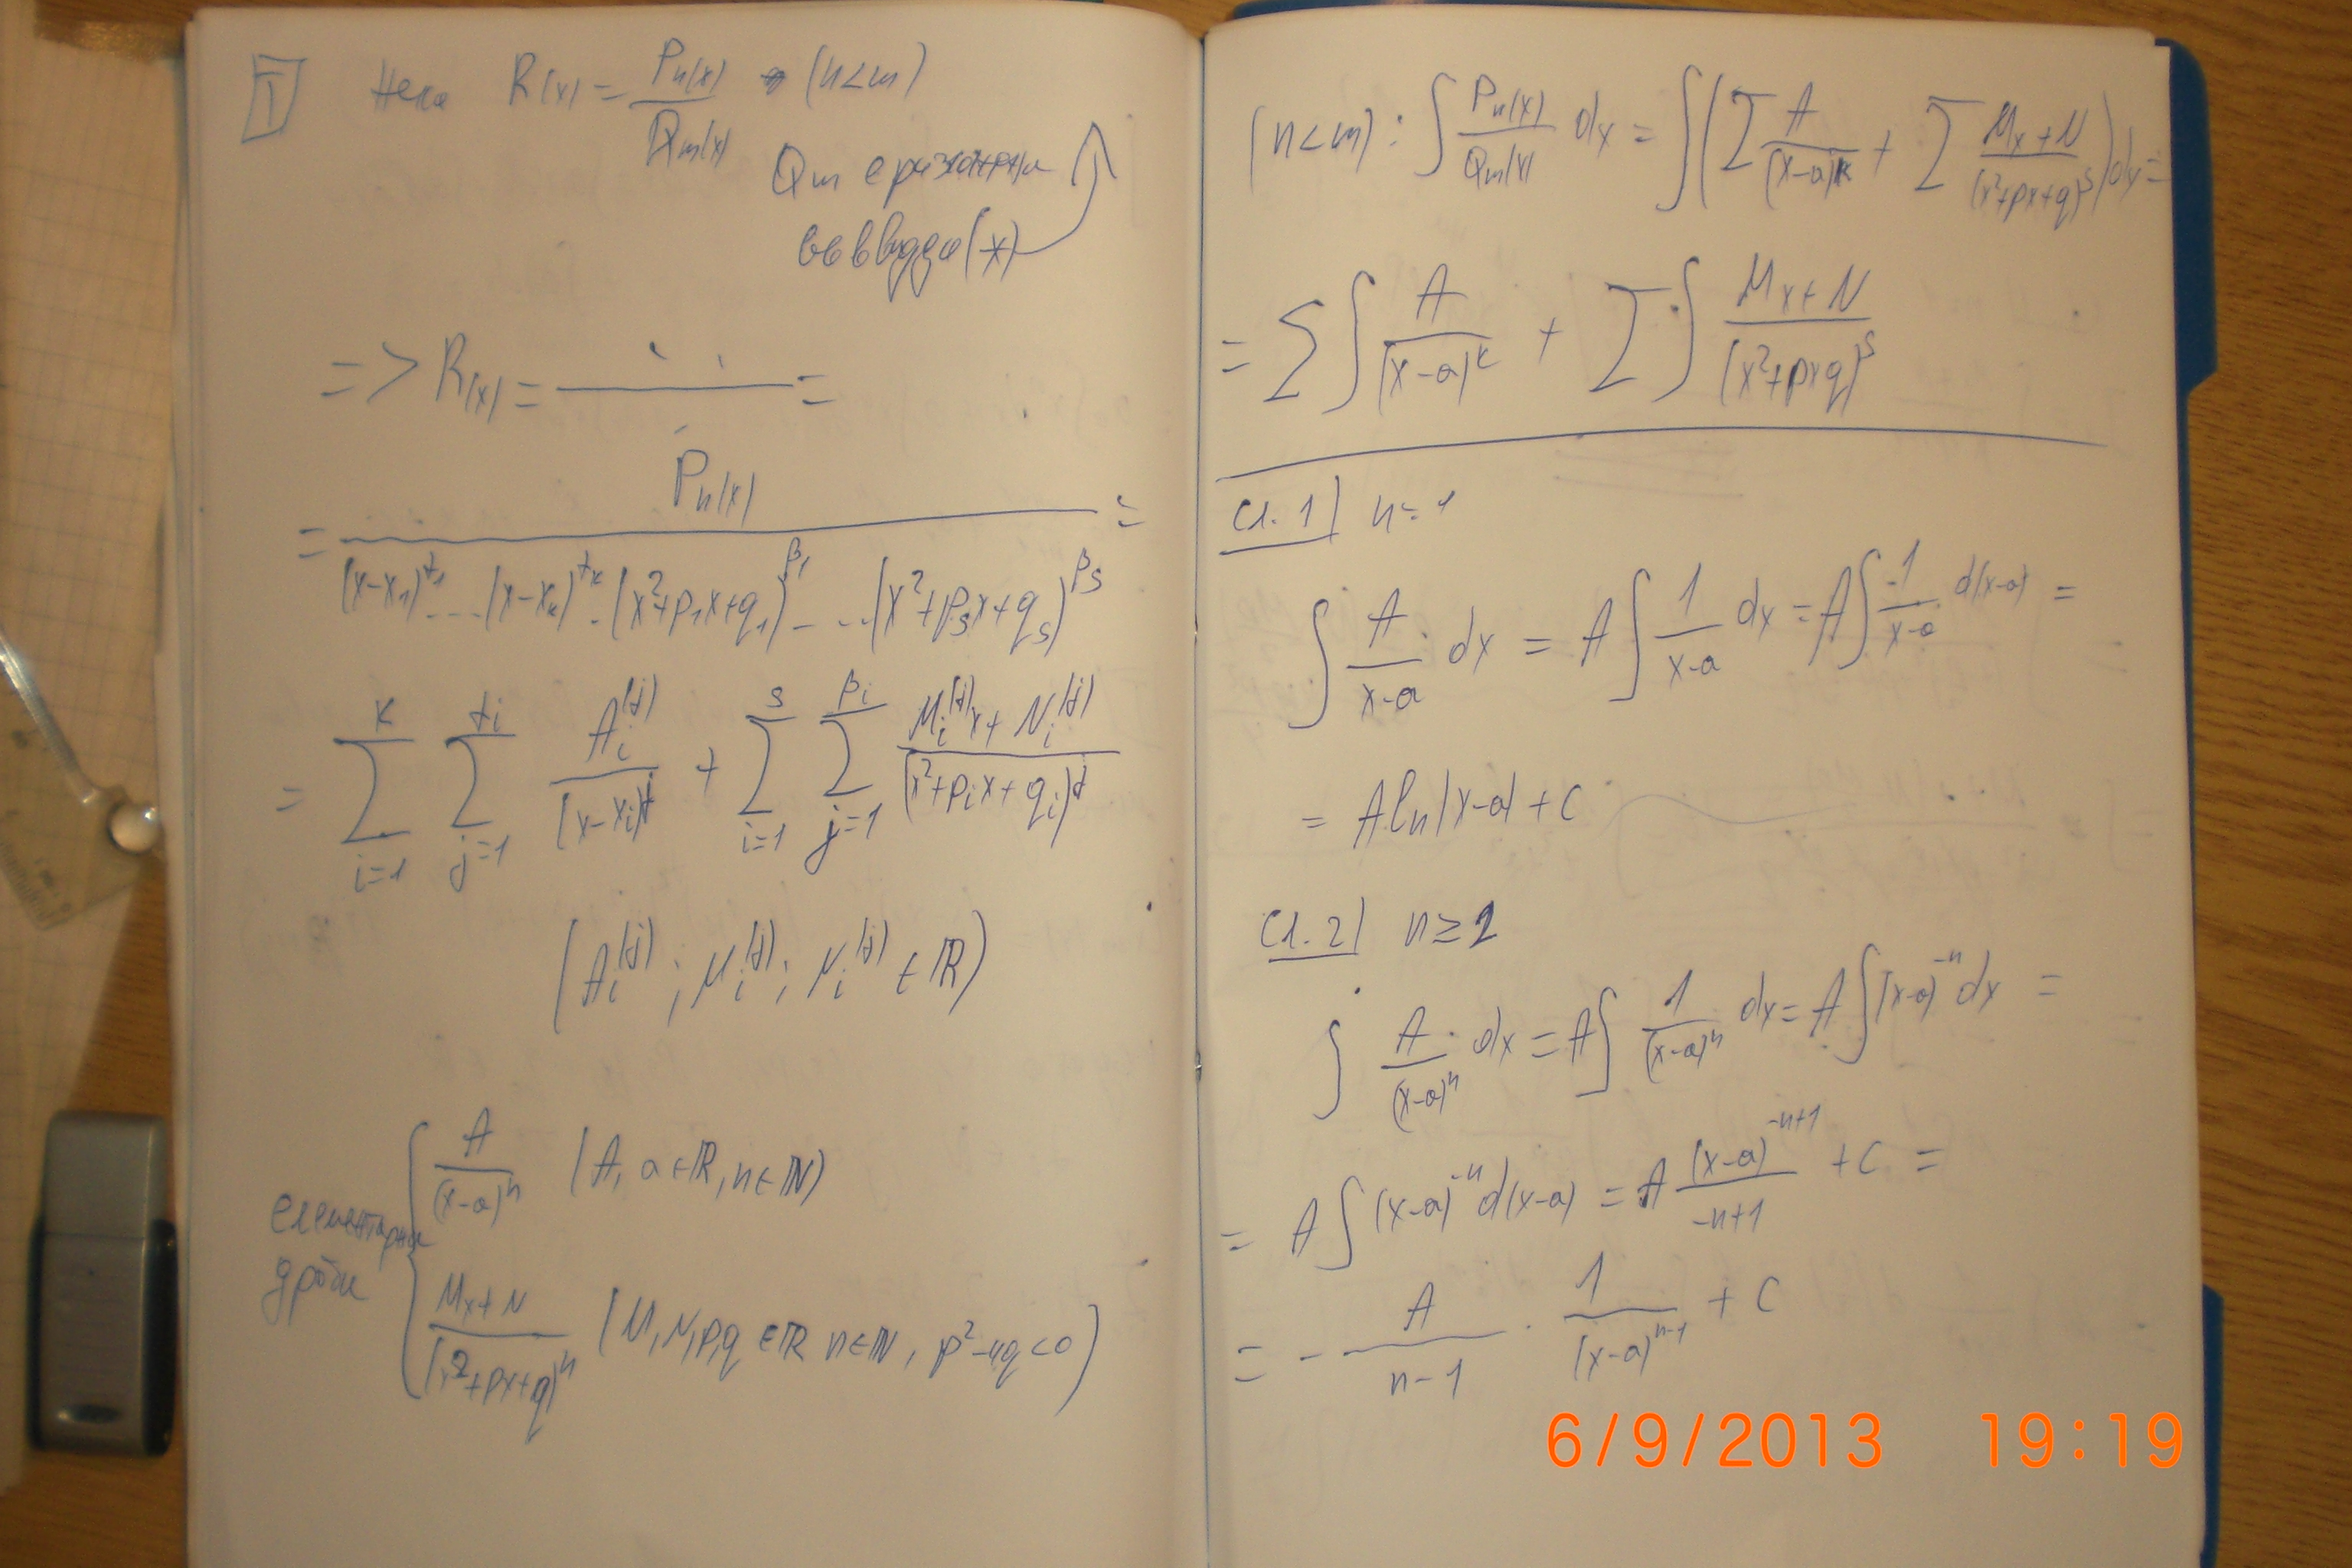 T Нека R(x) = P_n(x) / Q_m(x) (n<m)
Q_m е разложен
във вида (*)
=> R(x) = ———— =
= P_n(x) / (x-x_1)^{α_1} ... (x-x_k)^{α_k} · (x^2+p_1x+q_1)^{β_1} ... (x^2+p_sx+q_s)^{β_s} =
= ∑_{i=1}^{k} ∑_{j=1}^{α_i} A_i^{(j)} / (x-x_i)^j + ∑_{i=1}^{s} ∑_{j=1}^{β_i} (M_i^{(j)}x + N_i^{(j)}) / (x^2+p_ix+q_i)^j
(A_i^{(j)}; M_i^{(j)}; N_i^{(j)} ∈ ℝ)
елементарни
дроби
{ A / (x-a)^n (A, a∈ℝ, n∈ℕ)
Mx+N / (x^2+px+q)^n (M,N,p,q ∈ℝ n∈ℕ, p^2-4q<0)
(n<m): ∫ P_n(x) / Q_m(x) dx = ∫(∑ A / (x-a)^k + ∑ Mx+N / (x^2+px+q)^s) dx =
= ∑∫ A / (x-a)^k + ∑∫ Mx+N / (x^2+pxq)^s
Сл. 1| n=1
∫ A / x-a dx = A∫ 1 / x-a dx = A∫ 1 / x-a d(x-a) =
= A ln|x-a| + C
Сл. 2| n≥2
∫ A / (x-a)^n dx = A∫ 1 / (x-a)^n dx = A∫(x-a)^{-n} dx =
= A∫(x-a)^{-n} d(x-a) = A (x-a)^{-n+1} / -n+1 + C =
= - A / n-1 · 1 / (x-a)^{n-1} + C
6/9/2013 19:19